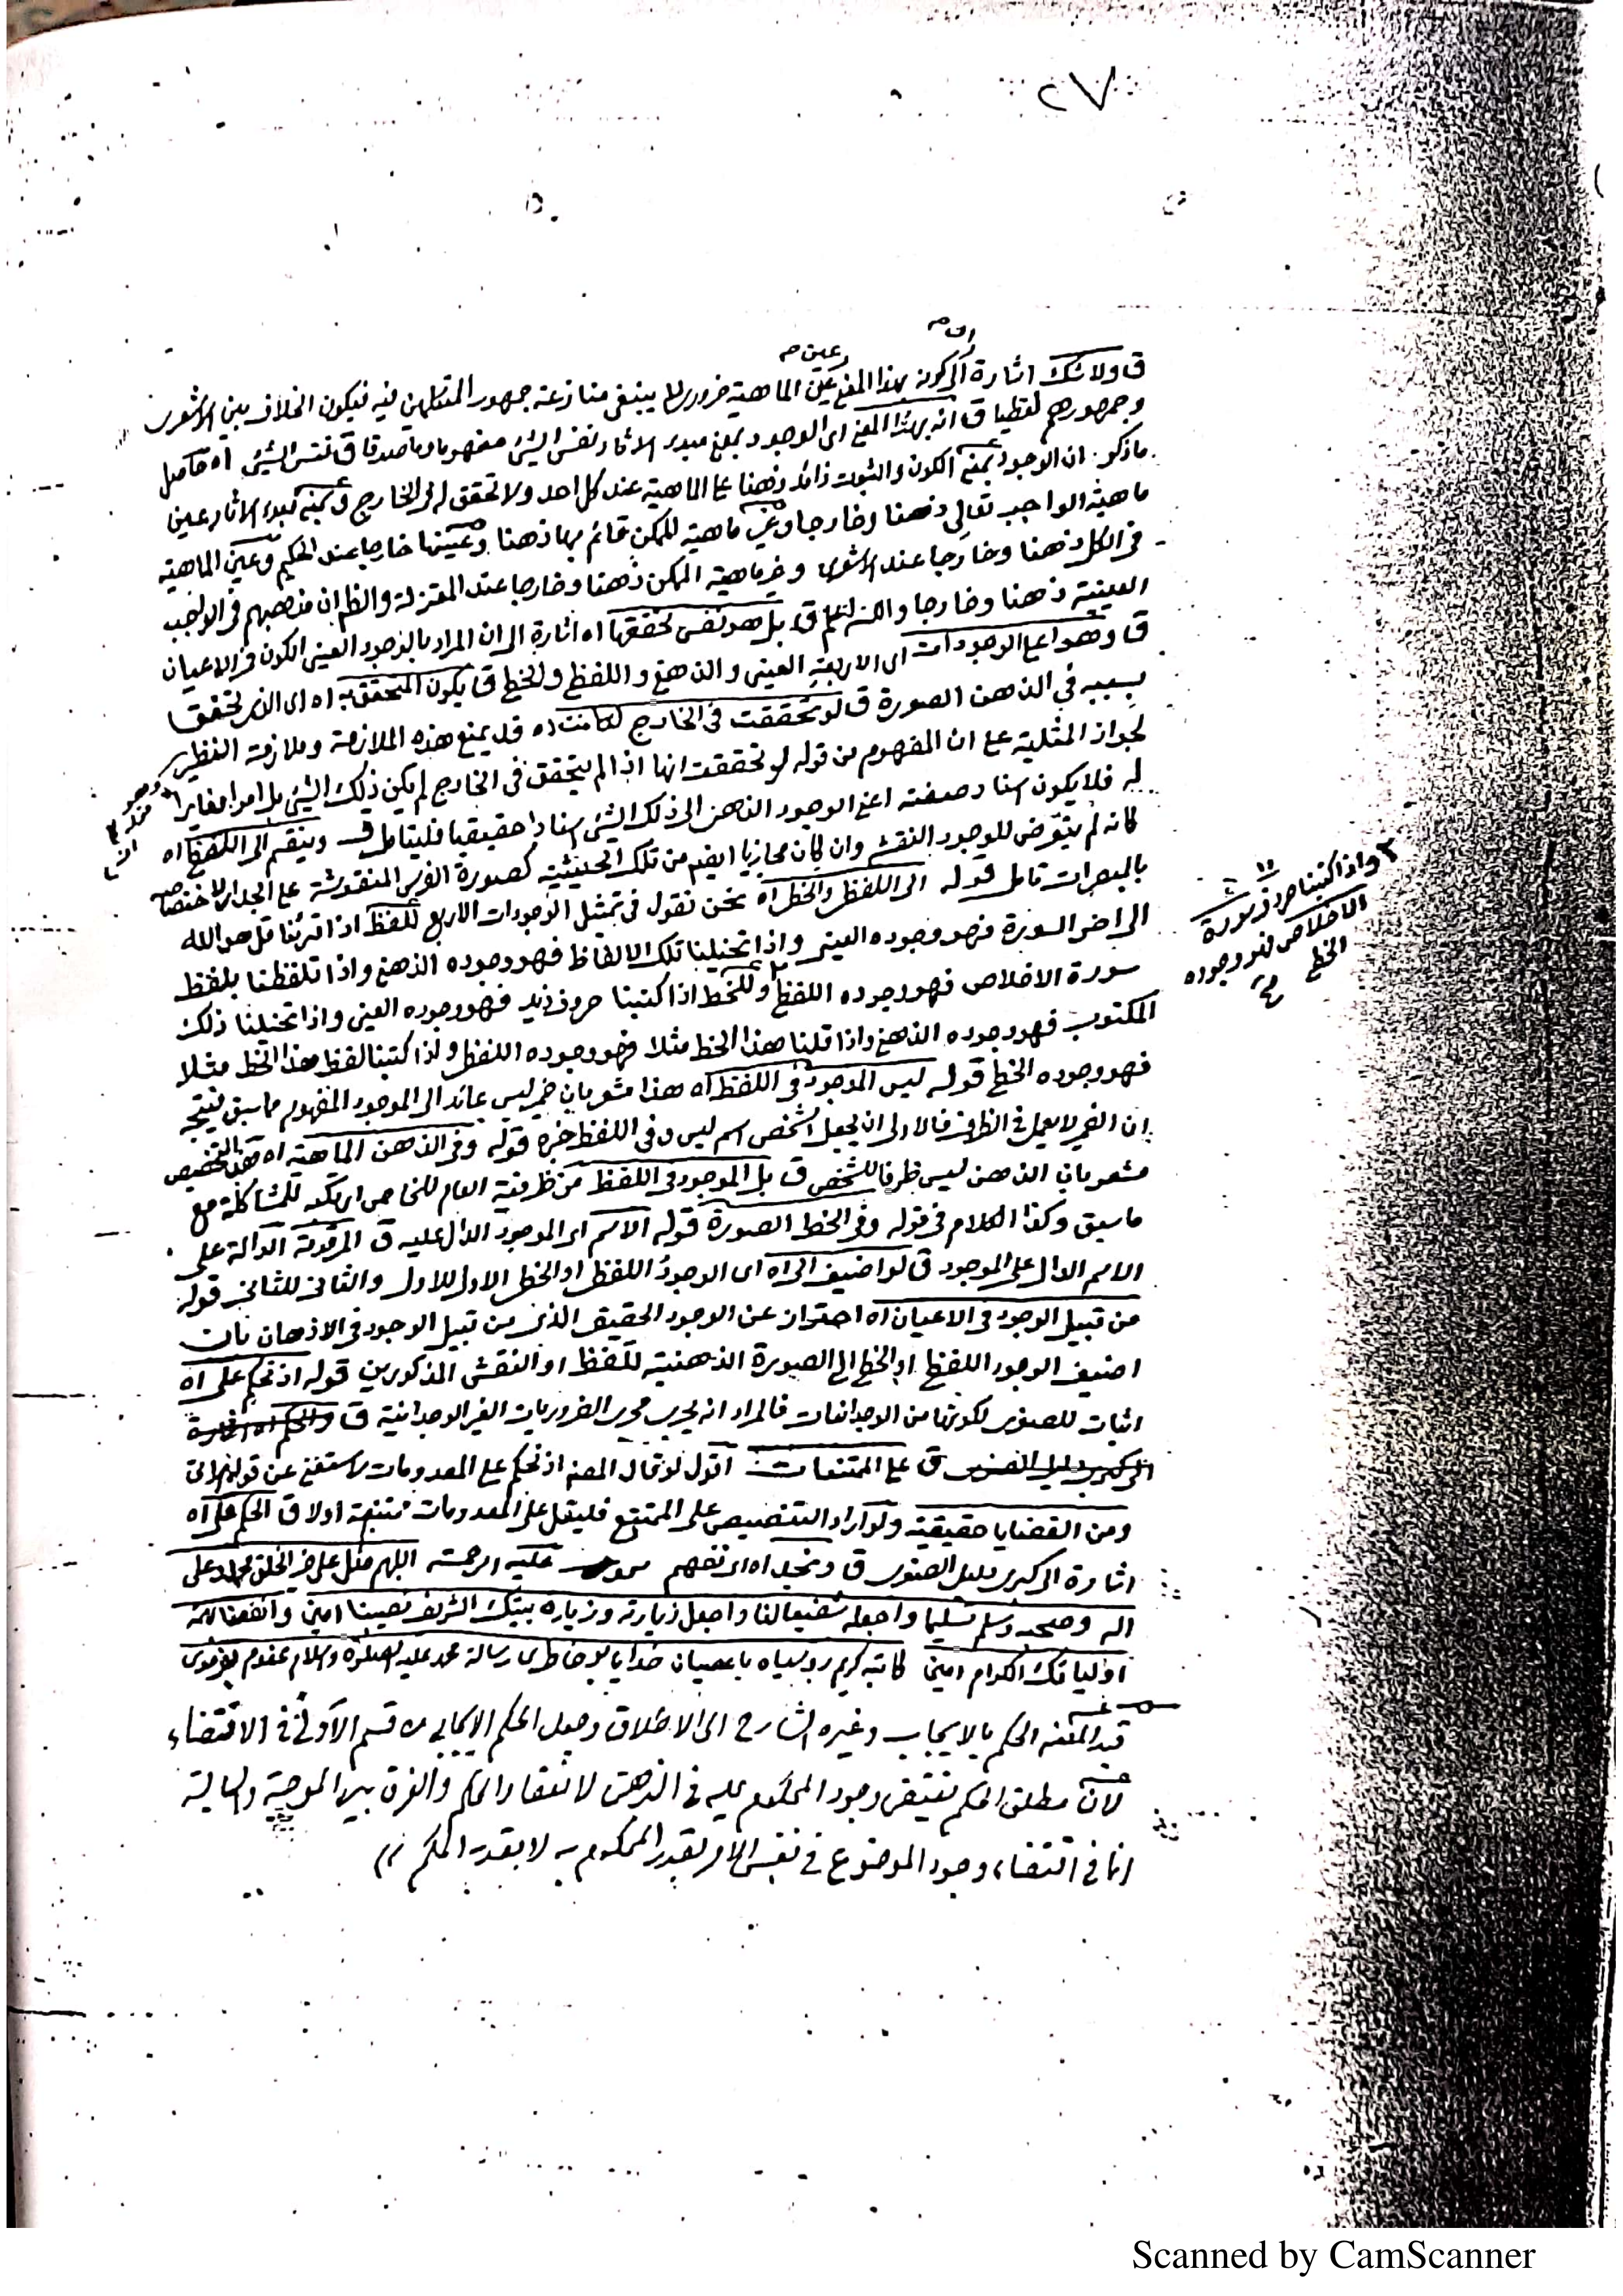 ٢٧
ق ولا شك اشارة الى كونه بهذا المعنى عين الماهية ضروري لا ينبغي منازعة جمهور المتكلمين فيه فيكون الخلاف بين الاشعري
وجمهورهم لفظيا ق انه بهذا المعنى اى الوجود بمعنى مبدء الاثار نفس الشئ مفهوما وما صدقا ق نفس الشئ اه حاصل
ما ذكر ان الوجود بمعنى الكون والثبوت زائد ذهنا على الماهية عند كل احد ولا تحقق له في الخارج وبمعنى مبدء الاثار عين
ماهية الواجب تعالى ذهنا وخارجا وغير ماهية الممكن قائم بها ذهنا وعينها خارجا عند الحكيم وعين الماهية
في الكل ذهنا وخارجا عند الاشعرى وغير ماهية الممكن ذهنا وخارجا عند المعتزلة والظ ان مذهبهم في الواجب
العينية ذهنا وخارجا والله اعلم ق بل هو نفس تحققها اه اشارة الى ان المراد بالوجود العيني الكون في الاعيان
ق وهو اعلى الوجودات اى الاربعة العيني والذهني واللفظي والخطي ق يكون المتحقق به اه اى الذى تحقق
بسببه في الذهن الصورة ق لو تحققت في الخارج لكانت اه قد يمنع هذه الملازمة وملازمة النظير
لجواز المثلية على ان المفهوم من قوله لو تحققت انها اذا لم يتحقق في الخارج لم يكن ذلك الشئ بل امرا مغايرا
له فلا يكون اسناد صفته اعني الوجود الذهني الى ذلك الشئ اسنادا حقيقيا فليتامل ق وينقسم الى اللفظي اه
كانه لم يتعرض للوجود النقشي وان كان مجازيا ايضا من تلك الحيثية كصورة الفرس المنقوشة على الجدار لاختصاصه
بالمبصرات تامل قوله الى اللفظي والخطي اه نحن نقول في تمثيل الوجودات الاربع للفظ اذا قرئنا قل هو الله
الى اخر السورة فهو وجوده العيني واذا تخيلنا تلك الالفاظ فهو وجوده الذهني واذا تلفظنا بلفظ
سورة الاخلاص فهو وجوده اللفظي وللخط اذا كتبنا حروف زيد فهو وجوده العيني واذا تخيلنا ذلك
المكتوب فهو وجوده الذهني واذا قلنا هذا الخط مثلا فهو وجوده اللفظي واذا كتبنا لفظ هذا الخط مثلا
فهو وجوده الخطي قوله ليس الموجود في اللفظ اه هذا مشعر بان ضمير ليس عائد الى الموجود المفهوم مما سبق
ان الضمير لا يعمل في الظرف فالاولى ان يجعل الشخص اسم ليس وفي اللفظ خبره قوله وفي الذهن الماهية اه هذا التخصيص
مشعر بان الذهن ليس ظرفا للشخص ق بل الموجود في اللفظ من ظرفية العام للخاص للمشاكلة مع
ما سبق وكذا الكلام في قوله وفي الخط الصورة قوله الاسم اى الموجود الدال عليه ق المرقومة الدالة على
الاسم الدال على الموجود ق لو اضيف الى اه اى الوجود اللفظي او الخطي الاول للاول والثاني للثاني قوله
من قبيل الوجود في الاعيان اه احتراز عن الوجود الحقيقي الذى من قبيل الوجود في الاذهان بان
اضيف الوجود اللفظي او الخطي الى الصورة الذهنية للفظ او النقش المذكورين قوله اذ نحكم على اه
اثبات للصغرى لكونها من الوجدانيات فالمراد انه يجرى مجرى الضروريات الغير الوجدانية ق
ق على الممتنعات اقول لو قال المصنف اذ نحكم على المعدومات لاستغنى عن قوله
ومن القضايا حقيقية ولو اراد التنصيص على الممتنع فليقل على المعدومات ممتنعة اولا ق الحكم على اه
اشارة الى كبرى دليل الصغرى ق ونجد اه عليه الرحمة اللهم صل على خير الخلق محمد وعلى
اله وصحبه وسلم تسليما واجعله شفيعا لنا واجعل زيارته وزيارة بيتك الشريف نصيبنا امين وانفعنا
اوليائك الكرام امين كاتبه كريم روسياه باعصيان خدايا محمد عليه الصلوة والسلام
قيد المصنف الحكم بالايجاب وغيره الشارح الى الاطلاق وجعل الحكم الايجابي من قسم الاولى في الاقتضاء
لان مطلق الحكم يقتضى وجود المحكوم عليه في الذهن لانعقاد الحكم والفرق بين الموجبة والسالبة
انما في اقتضاء وجود الموضوع في نفس الامر بقدر المحكوم به لا بقدر الحكم
واذا كتبنا حروف سورة
الاخلاص فهو وجوده
الخطي
Scanned by CamScanner